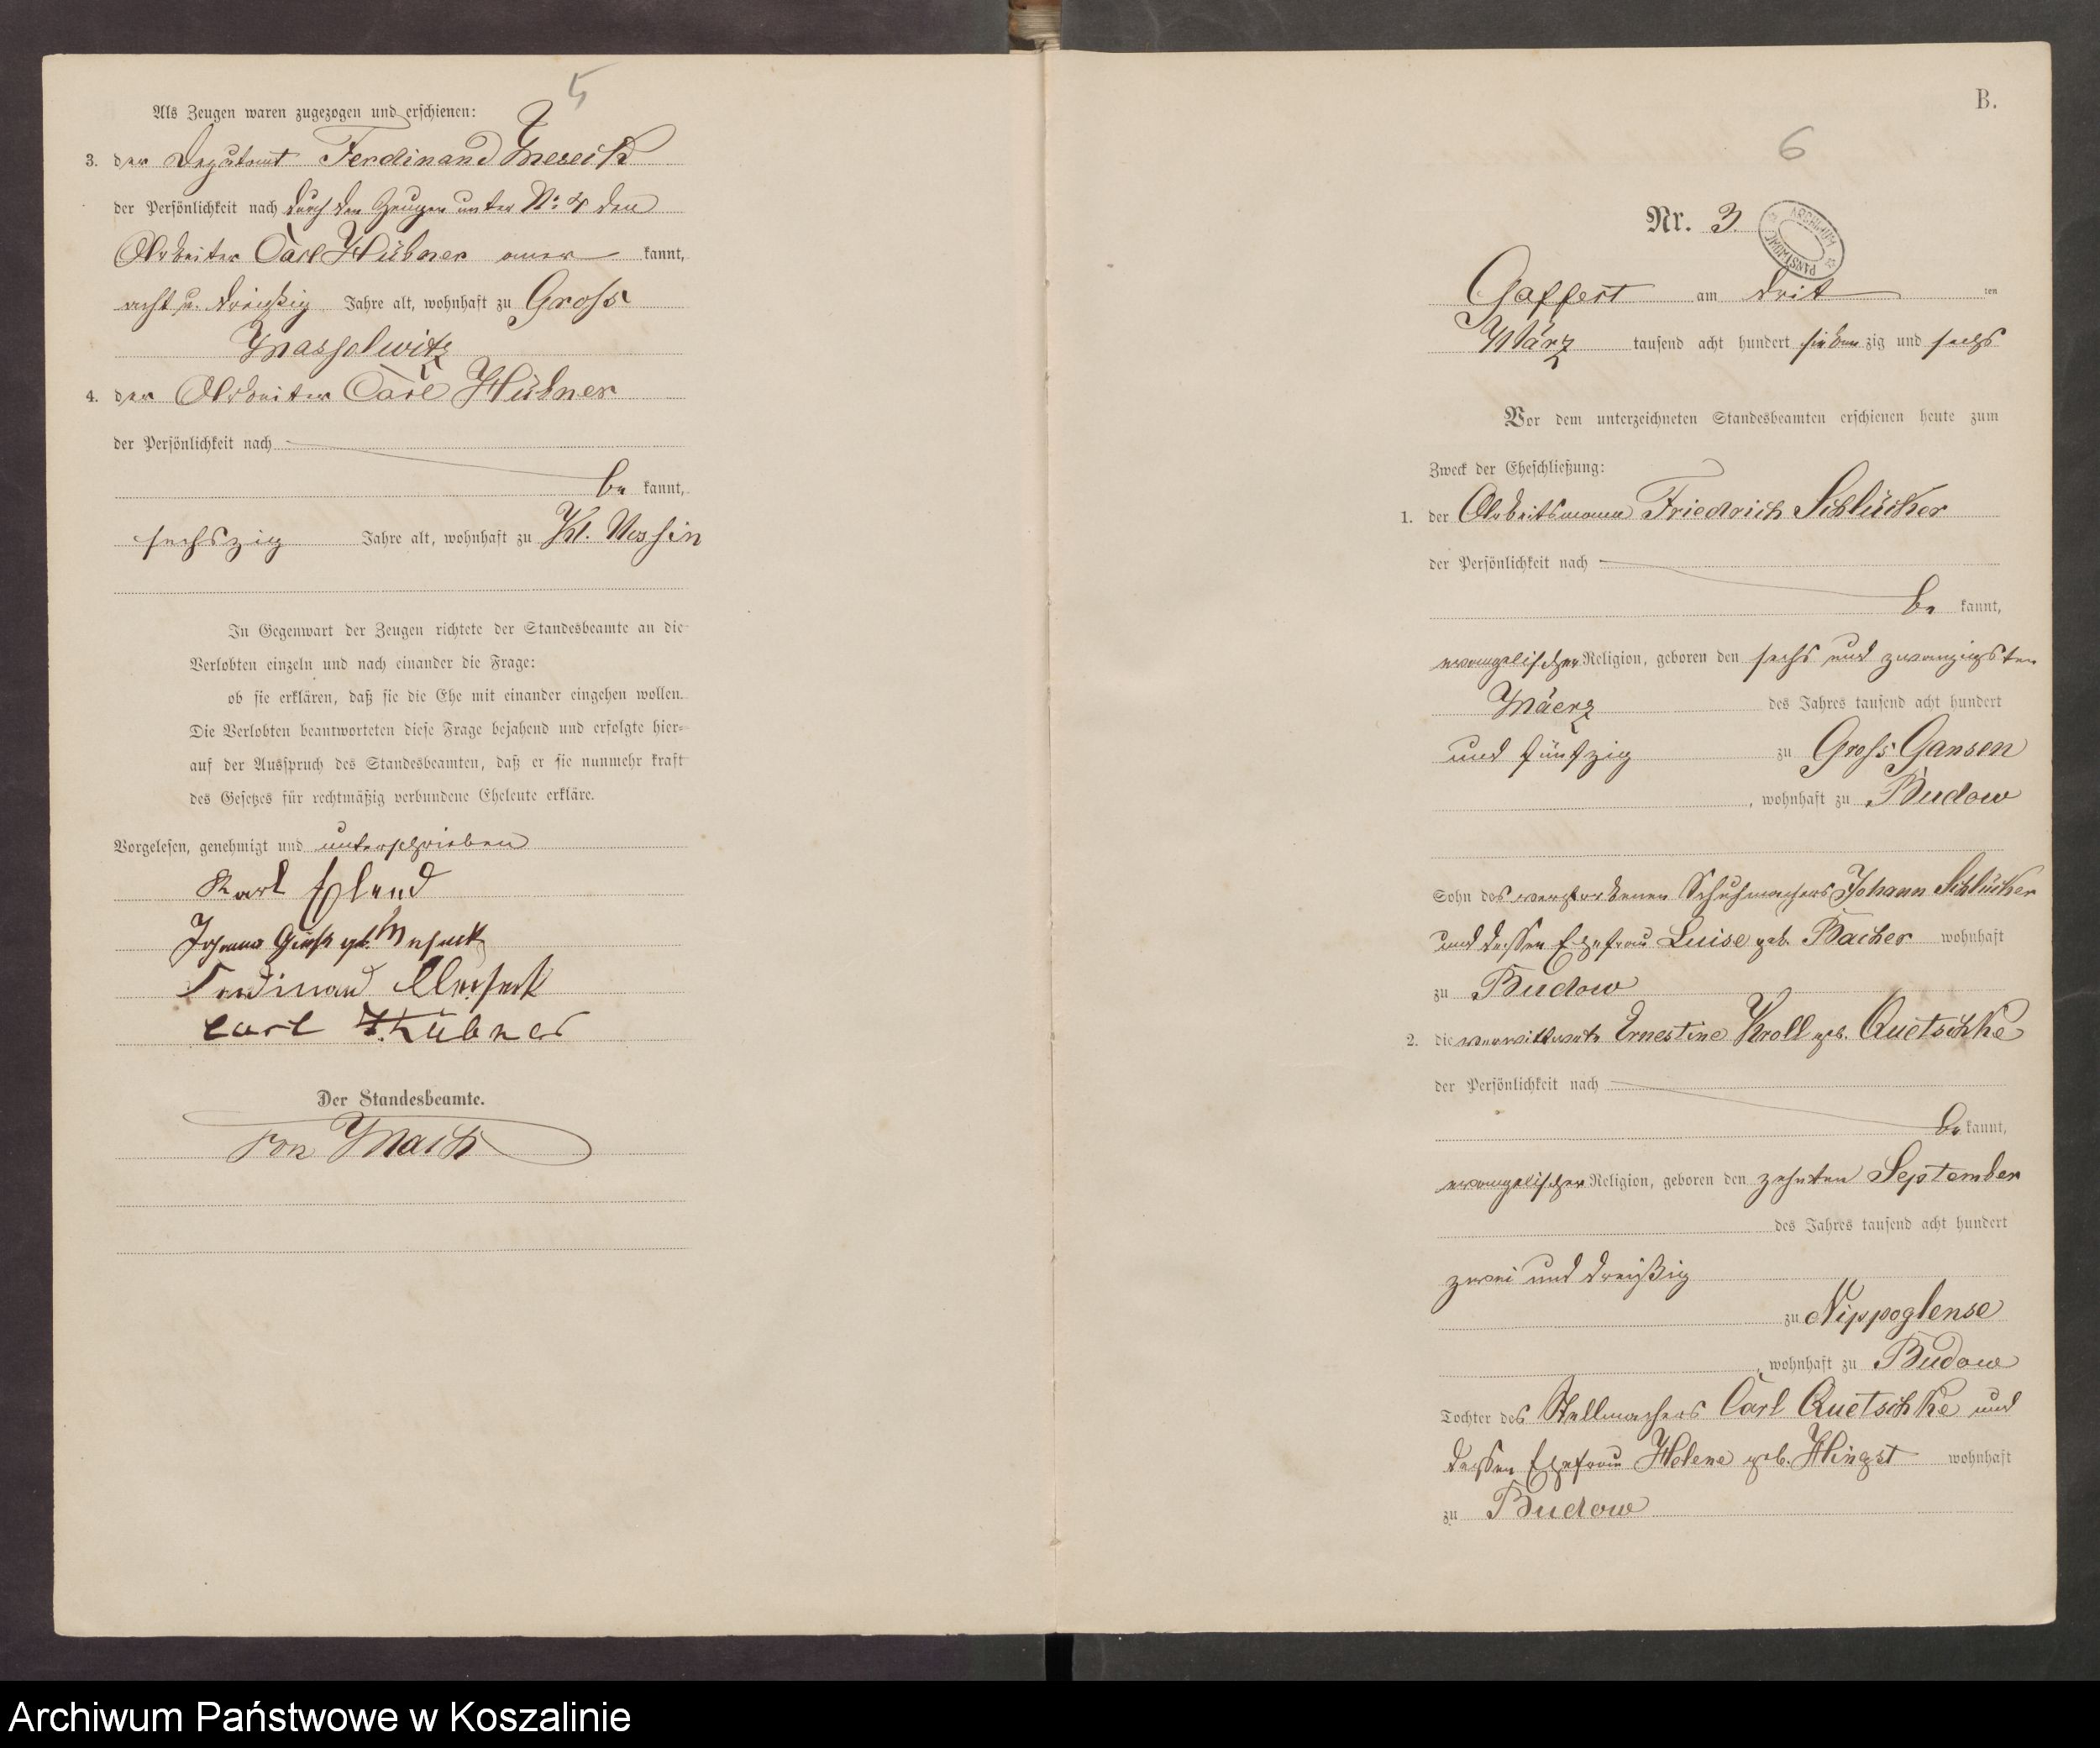 5
Als Zeugen waren zugezogen und erschienen:
3. der Deputant Ferdinand
der Persönlichkeit nach durch den Zeugen unter No: 4 den
Arbeiter Carl Hübner aner kannt,
acht u. dreißig Jahre alt, wohnhaft zu Gross
Massolwitz
4. der Arbeiter Carl Hübner
der Persönlichkeit nach
be kannt,
sechszig Jahre alt, wohnhaft zu Kl. Nossin
In Gegenwart der Zeugen richtete der Standesbeamte an die
Verlobten einzeln und nach einander die Frage:
ob sie erklären, daß sie die Ehe mit einander eingehen wollen.
Die Verlobten beantworteten diese Frage bejahend und erfolgte hier-
auf der Ausspruch des Standesbeamten, daß er sie nunmehr kraft
des Gesetzes für rechtmäßig verbundene Eheleute erkläre.
Vorgelesen, genehmigt und unterschrieben
Karl
geb.
Ferdinand
Carl Hübner
Der Standesbeamte.
von Mach
B.
6
Nr. 3.
ARCHIWUM PAŃSTWOWE
Gaffert am drit ten
März tausend acht hundert sieben zig und sechs
Vor dem unterzeichneten Standesbeamten erschienen heute zum
Zweck der Eheschließung:
1. der Arbeitsmann Friedrich Schlücker
der Persönlichkeit nach
be kannt,
evangelischer Religion, geboren den sechs und zwanzigsten
Maerz des Jahres tausend acht hundert
und fünfzig zu Gross Gansen
, wohnhaft zu Budow
Sohn des verstorbenen Schuhmachers Johann Schlücker
und dessen Ehefrau Luise geb. Bacher wohnhaft
zu Budow
2. die verwittwete Ernestine Kroll geb. Quetschke
der Persönlichkeit nach
be kannt,
evangelischer Religion, geboren den zehnten September
des Jahres tausend acht hundert
zwei und dreißig
zu Nippoglense
, wohnhaft zu Budow
Tochter des Stellmachers Carl Quetschke und
dessen Ehefrau Helene geb. Hingst wohnhaft
zu Budow
Archiwum Państwowe w Koszalinie